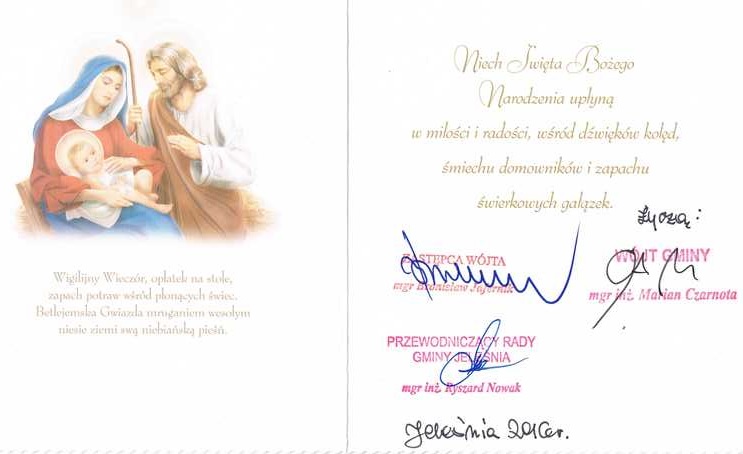 Wigilijny Wieczór, opłatek na stole,
zapach potraw wśród płonących świec.
Betlejemska Gwiazda mruganiem wesołym
niesie ziemi swą niebiańską pieśń.
Niech Święta Bożego
Narodzenia upłyną
w miłości i radości, wśród dźwięków kolęd,
śmiechu domowników i zapachu
świerkowych gałązek.
Życzą:
ZASTĘPCA WÓJTA
mgr
WÓJT GMINY
mgr inż. Marian Czarnota
PRZEWODNICZĄCY RADY
GMINY JELEŚNIA
mgr inż. Ryszard Nowak
Jeleśnia 2016r.